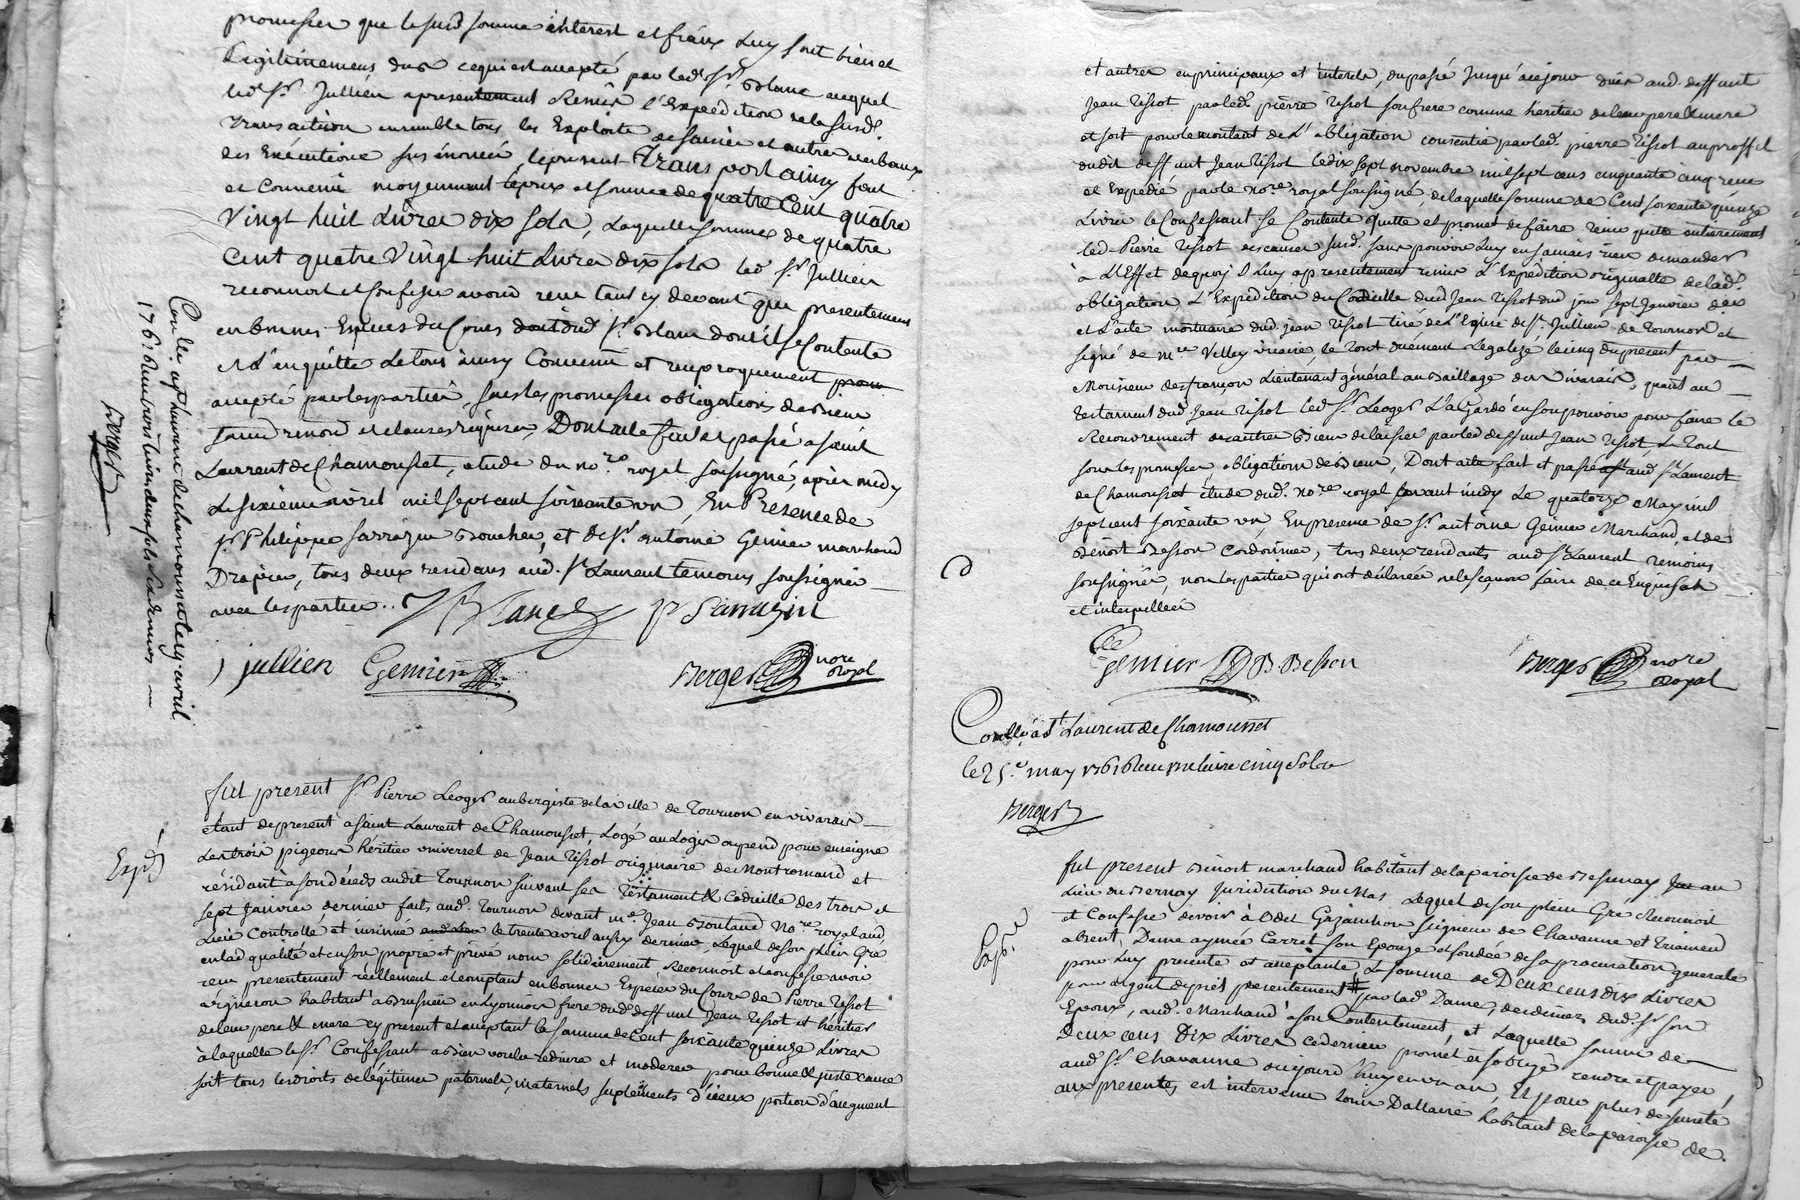 promesses que le susd somme interest et fraix luy sont bien et
Legitimemens dus ce qui est accepté par led. Sr. Blanc auquel
led. Sr. Jullien a presentement Remis l'Expedition de la susd.
transaction ensemble tous les Exploits de saisie et autres verbaux
des Exécutions sus énoncé, le present Transport ainsy fait
et Convenu moyennant le prix et somme de quatre Cent quatre
Vingt huit Livres dix sols, Laquelle somme de quatre
Cent quatre Vingt huit Livres dix sols led. Sr. Jullien
reconnoit et Confesse avoir reçu tant cy devant que presentement
en bonnes Especes du Cours dud. Sr. Blanc dont il se Contente
et l'en quitte Le tout ainsy Convenu et reciproquement
accepté par les parties, sous les promesses obligations de biens
renon et clauses requises, Dont acte fait et passé a saint
Laurent de Chamousset, etude du nore. royal soussigné, après midy
Le sixieme avril mil sept cent soixante un, En Presence de
Sr. Philippe Sarrazin Boucher, et de Sr. Antoine Gemier marchand
Drapier, tous deux residans aud. St. Laurent temoins soussignés
avec les parties.. Blanc P Sarrazin
J jullien Gemier Berger nore Royal
Conllé a St. Laurent de chamousset le 19. avril
1761 Reçu trois livres deux sols six deniers
Berger
Expéd
fut present Sr. Pierre Leoges aubergiste de la ville de Tournon en vivarais
étant de present a Saint Laurent de Chamousset, Logé au Logis ou pend pour enseigne
Les trois pigeons héritier universel de Jean Tissot originaire de Montromand et
résidant à son décéds audit Tournon suivant ses Testament & Codicille des trois et
sept Janvier dernier faits aud. Tournon devant me. Jean Nore. royal aud
Lieu Controllé et insinué le trente avril aussy dernier, Lequel de son plein Gré
en lad qualité et en son propre et privé nom solidairement, Reconnoit et confesse avoir
reçu presentement réellement et comptant en bonnes Especes du Cours de Pierre Tissot
vigneron habitant a Brusnieu en Lyonnois frere dud. deffunt Jean Tissot et héritier
de leur pere & mere cy present et acceptant la somme de Cent soixante quinze Livres
à laquelle le Sr. Confessant a bien voulu reduire et moderer pour bonne & juste cause
soit tous les droits de légitimes paternels, maternels suplements d'iceux portion d'augment
et autres en principaux et interets, du passé jusqu'à ce jour dues aud. deffunt
Jean Tissot par led. pierre Tissot son frere comme héritier de leur pere & mere
et soit pour le montant de l'obligation consentie par led. pierre Tissot au proffit
dudit deffunt Jean Tissot le dix sept novembre mil sept cens cinquante cinq reçue
et Expediée par le nore. royal soussigné, de laquelle somme de Cent soixante quinze
Livres le Confessant se Contente quitte et promet de faire tenir quitte entierement
led. Pierre Tissot des causes susd. sans pouvoir luy en jamais rien demander
à L'Effet de quoy il luy a presentement remis L'Expedition originalle de lad.
obligation L'Expedition du Codicille dud Jean Tissot dud jour sept Janvier der
et l'acte mortuaire dud. jean Tissot tiré de L'Eglise de St. Jullien de Tournon et
signé de mre Velley vicaire, le tout duement Legalizé le cinq du present par
Monsieur desfrançois Lieutenant général au Baillage du vivarais, quant au
testament dud. Jean Tissot led. Sr. Leoges L'a Gardé en son pouvoir pour faire le
Recouvrement des autres Biens delaissés par led deffunt Jean Tissot, Le Tout
sous les promesses, obligations de Biens, Dont acte fait et passé aud St. Laurent
de Chamousset étude dud. nore royal avant midy Le quatorze May mil
sept cent soixante un, En presence de Sr. antoine Gemier Marchand, et de
Benoit Besson Cordonnier, tous deux residants aud St. Laurent temoins
soussignés, non les parties qui ont déclarées ne le sçavoir faire de ce Enquises
et interpellées
Gemier B Besson Berger nore Royal
Conllé, a St. Laurent de Chamousset
le 25.e may 1761 Reçu une livre cinq Sols
Berger
Expée
fut present Benoit marchand habitant de la paroisse de Bessenay au
Lieu du Bernay juridiction du Mas Lequel de son plein Gré Reconnoit
et Confesse devoir à Odet Grijanchon seigneur de Chavanne et Triamend
absent, Dame aymée Carret son Epouze et fondée de sa procuration generale
pour luy presente et acceptante, La somme de Deux cens dix Livres
pour argent de prest presentement # par lad. Dame, des deniers dud. Sr. son
Epoux, aud. Marchand a son Contentement, et Laquelle somme de
Deux cens Dix Livres ce dernier promet et s'oblige rendre et payer
aud. Sr. Chavanne dicijourd'huy en un an, Et pour plus de sureté
aux presentes est intervenu Toine Dallaire habitant de la paroisse de